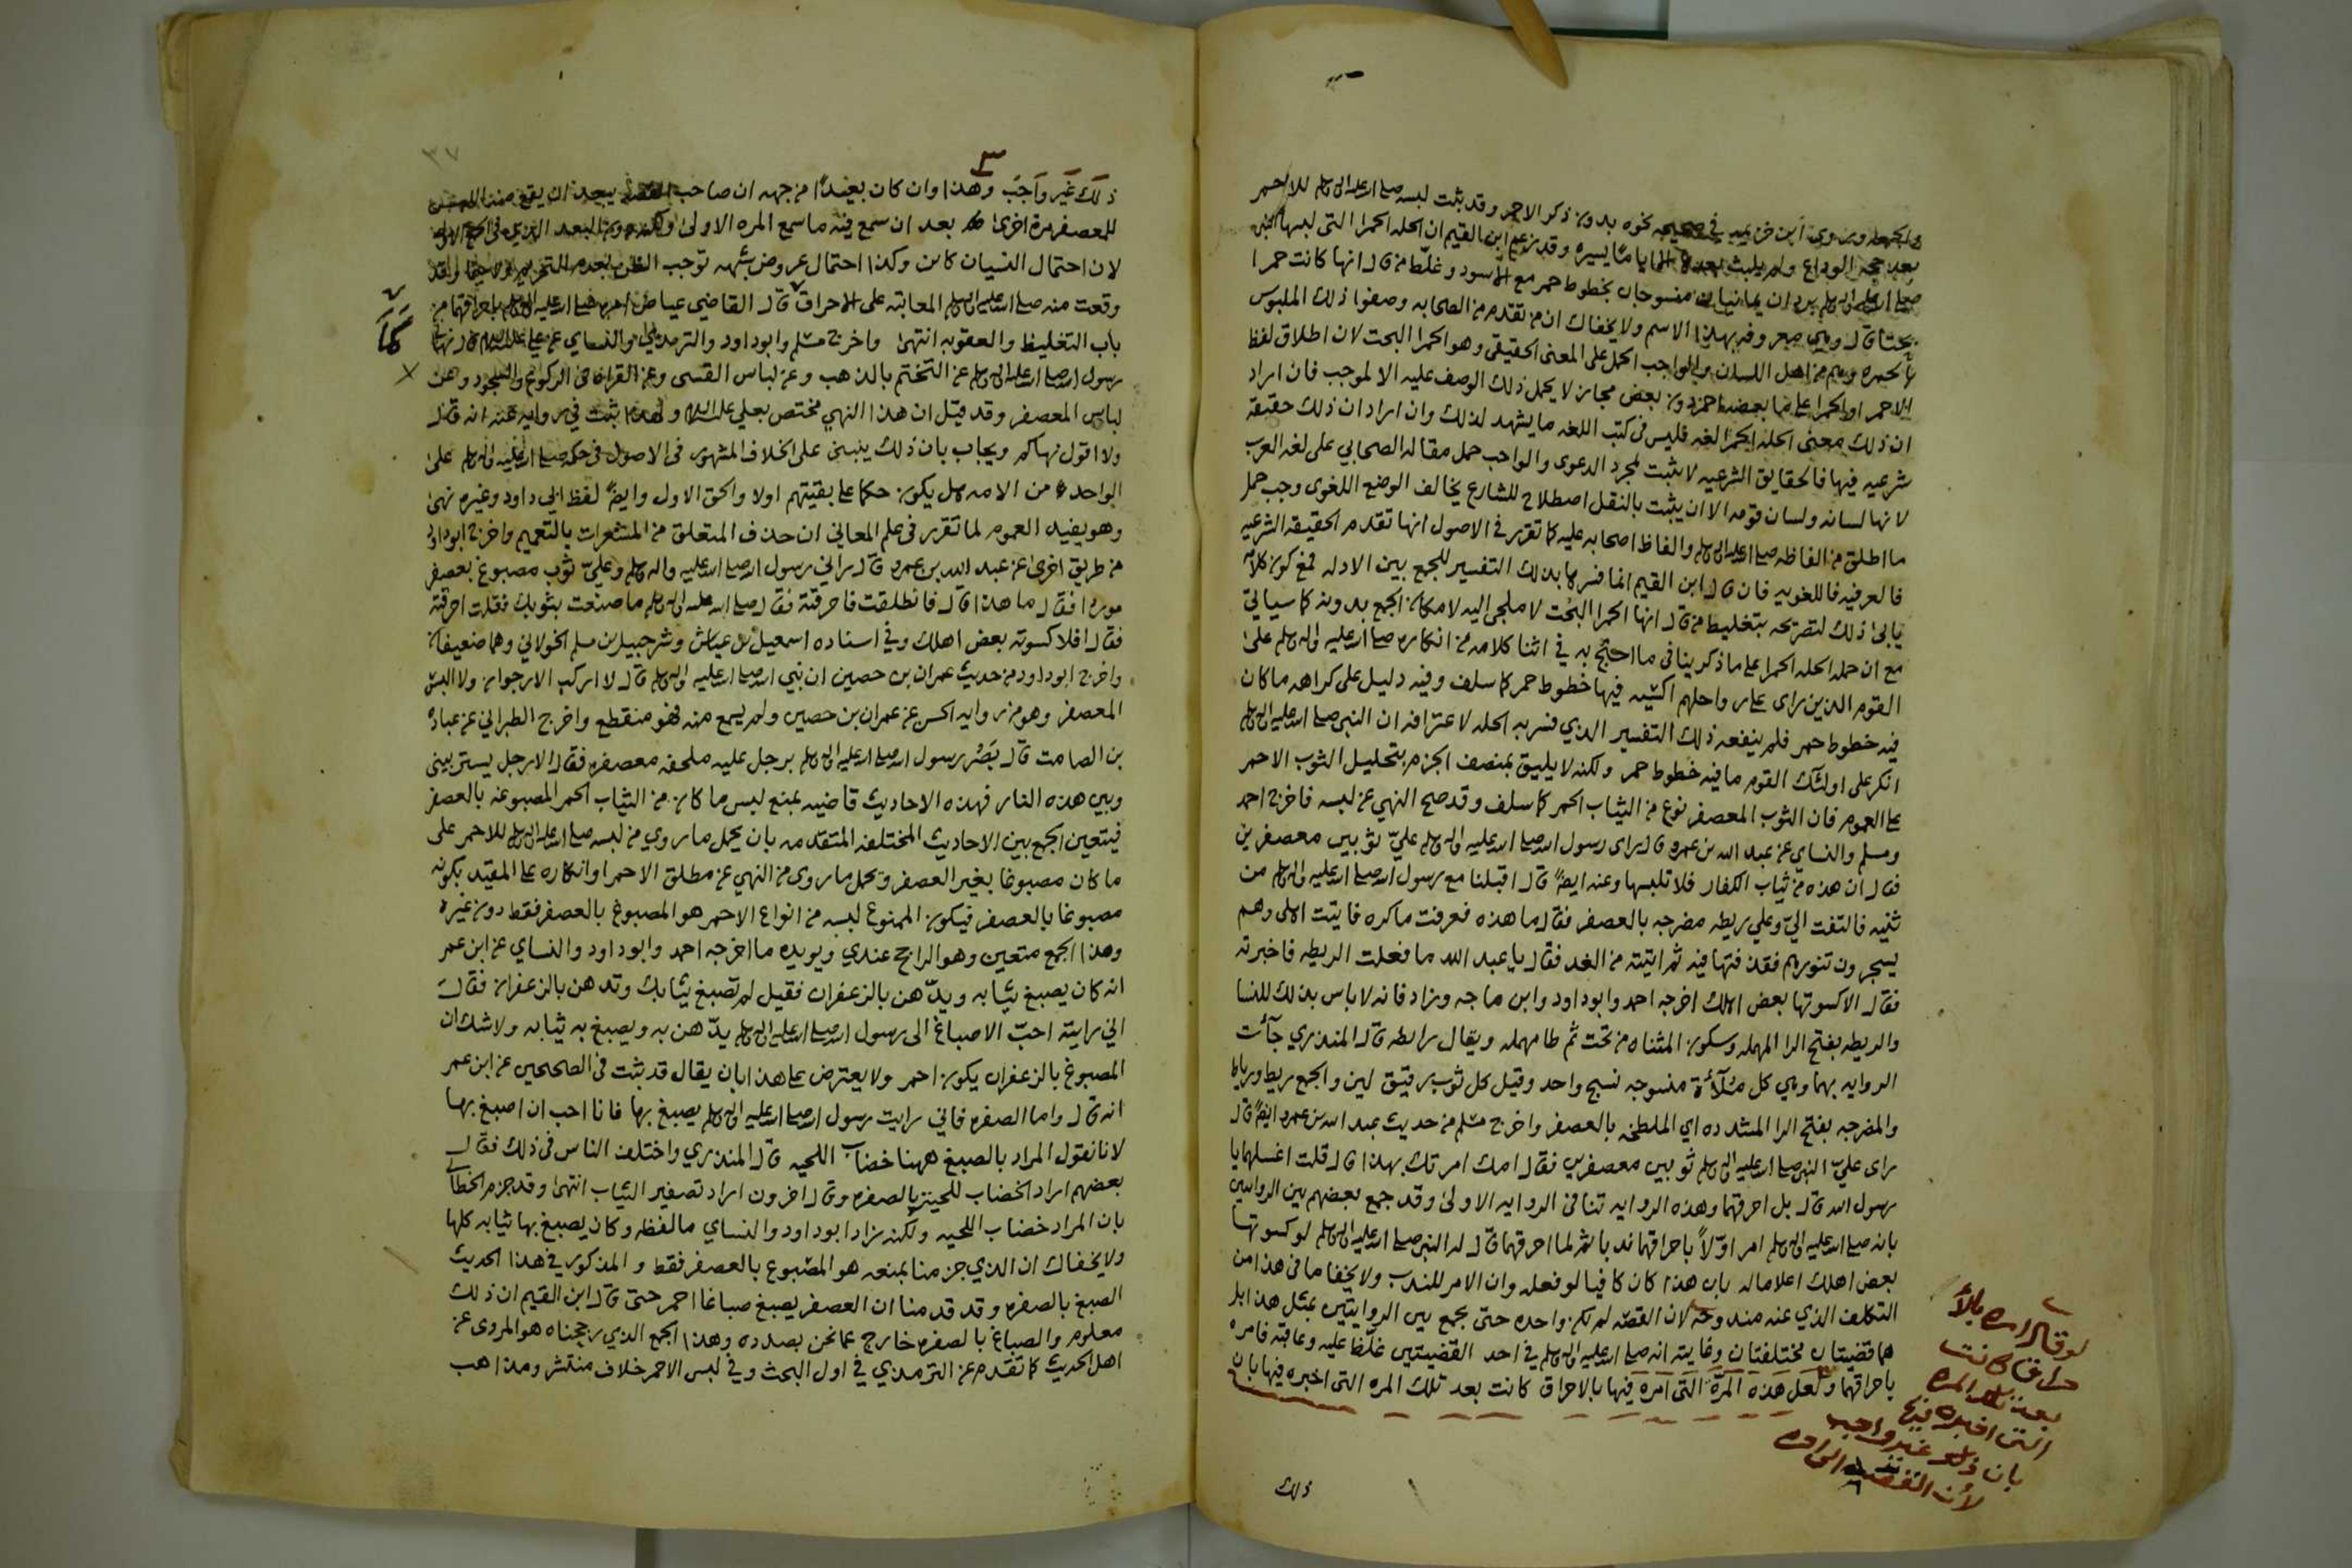 وابن ماجه وروى ابن خزيمه في صحيحه نحوه بدون ذكر الاحمر وقد ثبت لبسه صلى الله عليه واله وسلم للاحمر
بعد حجه الوداع ولم يلبث بعدها الا اياما يسيره وقد زعم ابن القيم ان الحله الحمرا التي لبسها النبي
صلى الله عليه واله وسلم بردان يمانيان منسوجان بخطوط حمر مع الاسود وغلّط من قال انها كانت حمرا
بحتا قال وهي معروفه بهذا الاسم ولا يخفاك ان من تقدم من الصحابه وصفوا ذلك الملبوس
بالحمره وهم من اهل اللسان والواجب الحمل على المعنى الحقيقي وهو الحمرا البحت لان اطلاق لفظ
الاحمر او الحمرا على ما بعضه احمر دون بعض مجاز لا يحمل ذلك الوصف عليه الا لموجب فان اراد
ان ذلك معنى الحله الحمرا لغه فليس في كتب اللغه ما يشهد لذلك وان اراد ان ذلك حقيقه
شرعيه فيها فالحقايق الشرعيه لا تثبت لمجرد الدعوى والواجب حمل مقاله الصحابي على لغه العرب
لانها لسانه ولسان قومه الا ان يثبت بالنقل اصطلاح للشارع يخالف الوضع اللغوى وجب حمل
ما اطلق من الفاظه صلى الله عليه واله وسلم والفاظ اصحابه عليه كما تقرر في الاصول انها تقدم الحقيقه الشرعيه
فالعرفيه فاللغويه فان قال ابن القيم انما فسرها بذلك التفسير للجمع بين الادله فمع كون كلامه
يابى ذلك لتصريحه بتغليط من قال انها الحمرا البحت لا ملجى اليه لامكان الجمع بدونه كما سياتي
مع ان حمله الحله الحمرا على ما ذكر ينافي ما احتج به في اثنا كلامه من انكاره صلى الله عليه واله وسلم على
القوم الذين راى على رواحلهم اكسيه فيها خطوط حمر كما سلف وفيه دليل على كراهه ما كان
فيه خطوط حمر فلم ينفعه ذلك التفسير الذي فسر به الحله لاعترافه ان النبي صلى الله عليه واله وسلم
انكر على اولئك القوم ما فيه خطوط حمر ولكنه لا يليق بمنصف الجزم بتحليل الثوب الاحمر
على العموم فان الثوب المعصفر نوع من الثياب الحمر كما سلف وقد صح النهي عن لبسه فاخرج احمد
ومسلم والنساي عن عبد الله بن عمرو قال راى رسول الله صلى الله عليه واله وسلم عليّ ثوبين معصفرين
فقال ان هذه من ثياب الكفار فلا تلبسها وعنه ايضً قال اقبلنا مع رسول الله صلى الله عليه واله وسلم من
ثنيه فالتفت اليّ وعلي ريطه مضرجه بالعصفر فقال ما هذه فعرفت ما كره فاتيت اهلى وهم
يسجرون تنورهم فقذفتها فيه ثم اتيته من الغد فقال يا عبد الله ما فعلت الريطه فاخبرته
فقال الا كسوتها بعض اهلك اخرجه احمد وابو داود وابن ماجه وزاد فانه لا باس بذلك للنسا
والريطه بفتح الرا المهمله وسكون المثناه من تحت ثم طا مهمله ويقال رايطه قال المنذري جآئت
الروايه بهما وهي كل ملآئة منسوجه نسج واحد وقيل كل ثوب رقيق لين والجمع ريط ورياط
والمضرجه بفتح الرا المشدده اي الملطخه بالعصفر واخرج مسلم من حديث عبد الله بن عمرو ايضً قال
راى عليّ النبي صلى الله عليه واله وسلم ثوبين معصفرين فقال امك امرتك بهذا قال قلت اغسلهما يا
رسول الله قال بل احرقهما وهذه الروايه تنافي الروايه الاولى وقد جمع بعضهم بين الروايتين
بانه صلى الله عليه واله وسلم امر اوّلاً باحراقهما ندبا ثم لما احرقهما قال له النبي صلى الله عليه واله وسلم لو كسوتها
بعض اهلك اعلاما له بان هذا كان كافيا لو فعله وان الامر للندب ولا يخفا ما في هذا من
التكلف الذي عنه مندوحه لان القصه لم تكن واحده حتى يجمع بين الروايتين بمثل هذا بل
هما قضيتان مختلفتان وغايته انه صلى الله عليه واله وسلم في احد القضيتين غلّظ عليه وعاقبه فامره
باحراقهما ولعل هذه المرّة التي امره فيها بالاحراق كانت بعد تلك المره التي اخبره فيها بان
لو قال امره بالا
حراق كانت
بعد تلك المره
التي اخبره فيها
بان ذلك غير واجب
لأن القصه
ذلك
٣٧
٣
ذلك غير واجب وهذا وان كان بعيدًا من جهه ان صاحب القصه يبعد ان يقع منه اللبس
للمعصفر مرة اخرى بعد ان سمع فيه ما سمع المره الاولى ولكنه دون البعد الذي في الجمع الاول
لان احتمال النسيان كائن وكذا احتمال عروض شبهه توجب الظن بعدم التحريم ولا سيما وقد
وقعت منه صلى الله عليه واله وسلم المعاتبه على الاحراق قال القاضي عياض امره صلى الله عليه واله وسلم باحراقهما من
باب التغليظ والعقوبه انتهى واخرج مسلم وابو داود والترمذي والنساي عن علي عليه السلام قال نهانى
رسول الله صلى الله عليه واله وسلم عن التختم بالذهب وعن لباس القسى وعن القراه في الركوع والسجود وعن
لباس المعصفر وقد قيل ان هذا النهي مختص بعلي عليه السلام ولهذا ثبت في روايه عنه انه قال
ولا اقول نهاكم ويجاب بان ذلك ينبنى على الخلاف المشهور في الاصول في حكمه صلى الله عليه واله وسلم على
الواحد من الامه هل يكون حكما على بقيتهم اولا والحق الاول وايضً لفظ ابي داود وغيره نهى
وهو يفيد العموم لما تقرر في علم المعاني ان حذف المتعلق من المشعرات بالتعميم واخرج ابو داود
من طريق اخرى عن عبد الله بن عمرو قال راني رسول الله صلى الله عليه واله وسلم وعليّ ثوب مصبوغ بعصفر
موردا فقال ما هذا قال فانطلقت فاحرقته فقال صلى الله عليه واله وسلم ما صنعت بثوبك فقلت احرقته
فقال افلا كسوته بعض اهلك وفي اسناده اسمعيل بن عياش وشرحبيل بن مسلم الخولاني وهما ضعيفان
واخرج ابو داود من حديث عمران بن حصين ان نبي الله صلى الله عليه واله وسلم قال لا اركب الارجوان ولا البس
المعصفر وهو من روايه الحسن عن عمران بن حصين ولم يسمع منه فهو منقطع واخرج الطبراني عن عباده
بن الصامت قال بصر رسول الله صلى الله عليه واله وسلم برجل عليه ملحفه معصفره فقال الا رجل يستر بيني
وبين هذه النار فهذه الاحاديث قاضيه بمنع لبس ما كان من الثياب الحمر المصبوغه بالعصفر
فيتعين الجمع بين الاحاديث المختلفه المتقدمه بان يحمل ما روي من لبسه صلى الله عليه واله وسلم للاحمر على
ما كان مصبوغا بغير العصفر ويحمل ما روى من النهي عن مطلق الاحمر او انكاره على المقيد بكونه
مصبوغا بالعصفر فيكون الممنوع لبسه من انواع الاحمر هو المصبوغ بالعصفر فقط دون غيره
وهذا الجمع متعين وهو الراجح عندي ويويده ما اخرجه احمد وابو داود والنساي عن ابن عمر
انه كان يصبغ ثيابه ويدّهن بالزعفران فقيل لم تصبغ ثيابك وتدهن بالزعفران فقال
اني رايته احبّ الاصباغ الى رسول الله صلى الله عليه واله وسلم يدّهن به ويصبغ به ثيابه ولا شك ان
المصبوغ بالزعفران يكون احمر ولا يعترض على هذا بان يقال قد ثبت في الصحيحين عن ابن عمر
انه قال واما الصفره فاني رايت رسول الله صلى الله عليه واله وسلم يصبغ بها فانا احب ان اصبغ بها
لانا نقول المراد بالصبغ ههنا خضاب اللحيه قال المنذري واختلف الناس في ذلك فقال
بعضهم اراد الخضاب للحيته بالصفره وقال اخرون اراد تصفير الثياب انتهى وقد جزم الخطابي
بان المراد خضاب اللحيه ولكنه زاد ابو داود والنساي ما لفظه وكان يصبغ بها ثيابه كلها
ولا يخفاك ان الذي جزمنا بمنعه هو المصبوغ بالعصفر فقط والمذكور في هذا الحديث
الصبغ بالصفره وقد قدمنا ان العصفر يصبغ صباغا احمر حتى قال ابن القيم ان ذلك
معلوم والصباغ بالصفره خارج عما نحن بصدده وهذا الجمع الذي رجحناه هو المروى عن
اهل الحديث كما تقدم عن الترمذي في اول البحث وفي لبس الاحمر خلاف منتشر ومذاهب